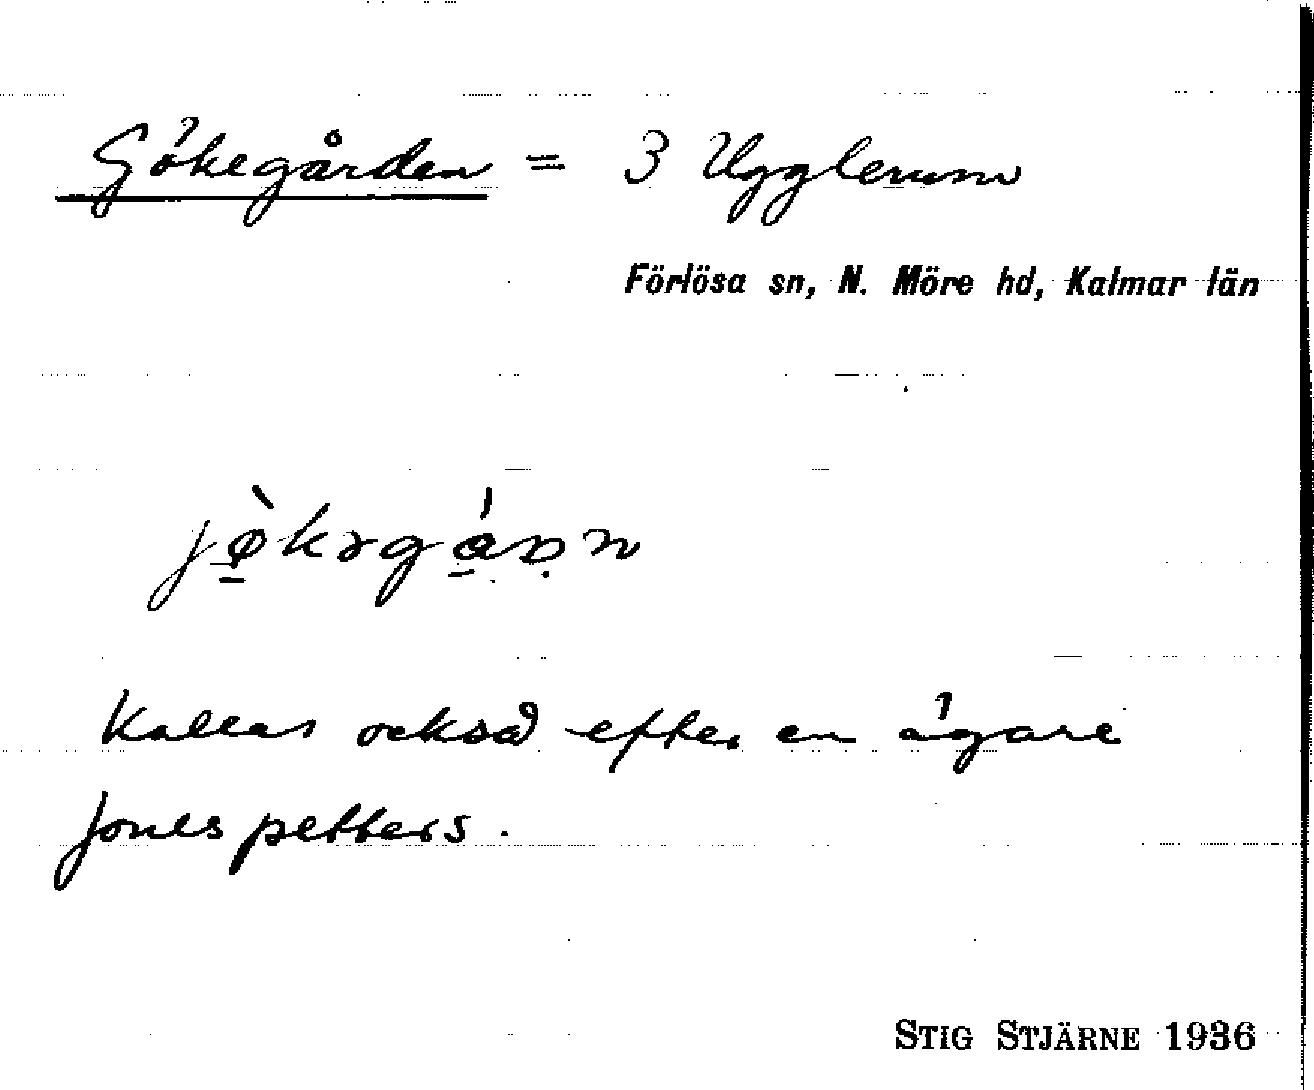 Gökegården = 3 Ugglerum
Förlösa sn, N. Möre hd, Kalmar län
Kallas också efter en ägare
Jonespetters.
STIG STJÄRNE 1936